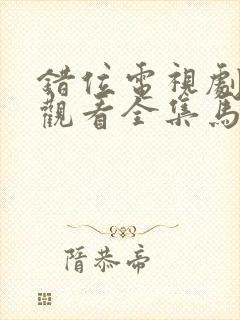 錯位電視劇
觀看全集馬
隋恭帝